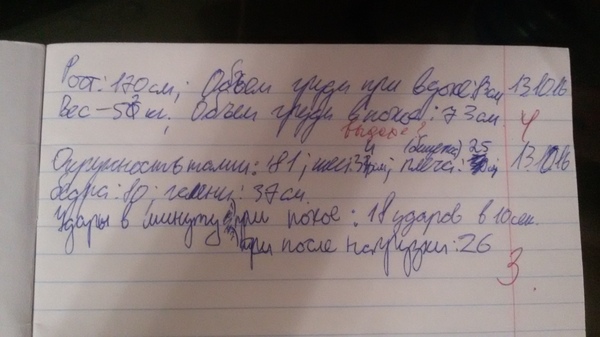 Рост: 170 см; Объем груди при вдохе: см 13.10.16
Вес - 5 кг. Объем груди в покое: 73 см
выдохе? 4
(бицепс) 25
Окружность талии: 81; шеи: 3 см; плеча: см 13.10.16
бедра: 80; голени: 37 см.
Удары в минуту при покое: 18 ударов в 10 сек.
при после нагрузки: 26
3.